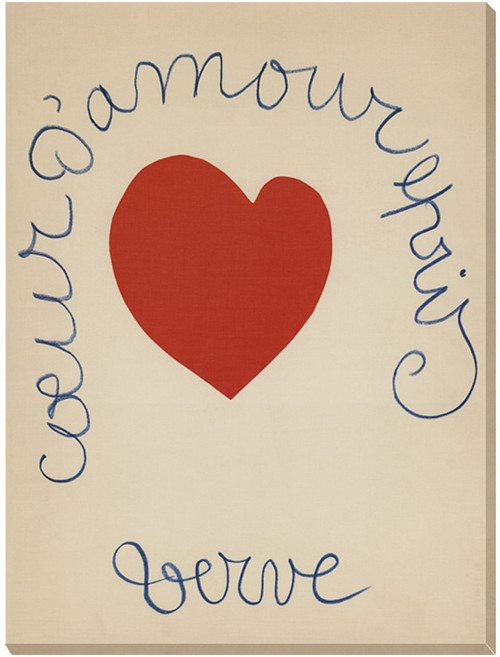 cœur d'amour epris
verve